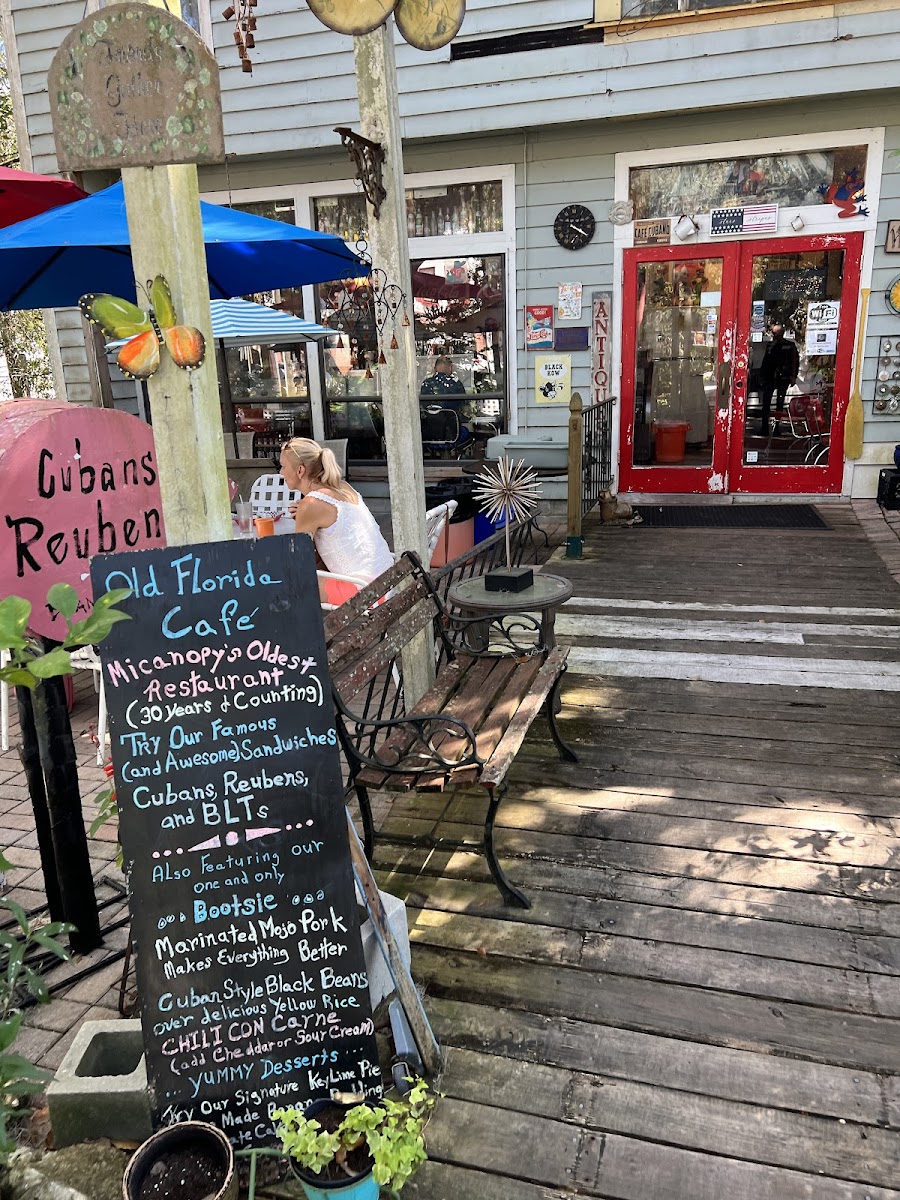 Gallery
Cubans
Reuben
Old Florida
Café
Micanopy's Oldest
Restaurant
(30 Years & Counting)
Try Our Famous
(and Awesome) Sandwiches
Cubans, Reubens,
and BLTs
Also Featuring our
one and only
Bootsie
Marinated Mojo Pork
Makes Everything Better
Cuban Style Black Beans
over delicious Yellow Rice
CHILI CON Carne
(add Cheddar or Sour Cream)
... YUMMY Desserts ...
Try Our Signature Key Lime Pie
Made Banana Pudding
BLACK
COW
ANTIQU
CUBANO
WiFi